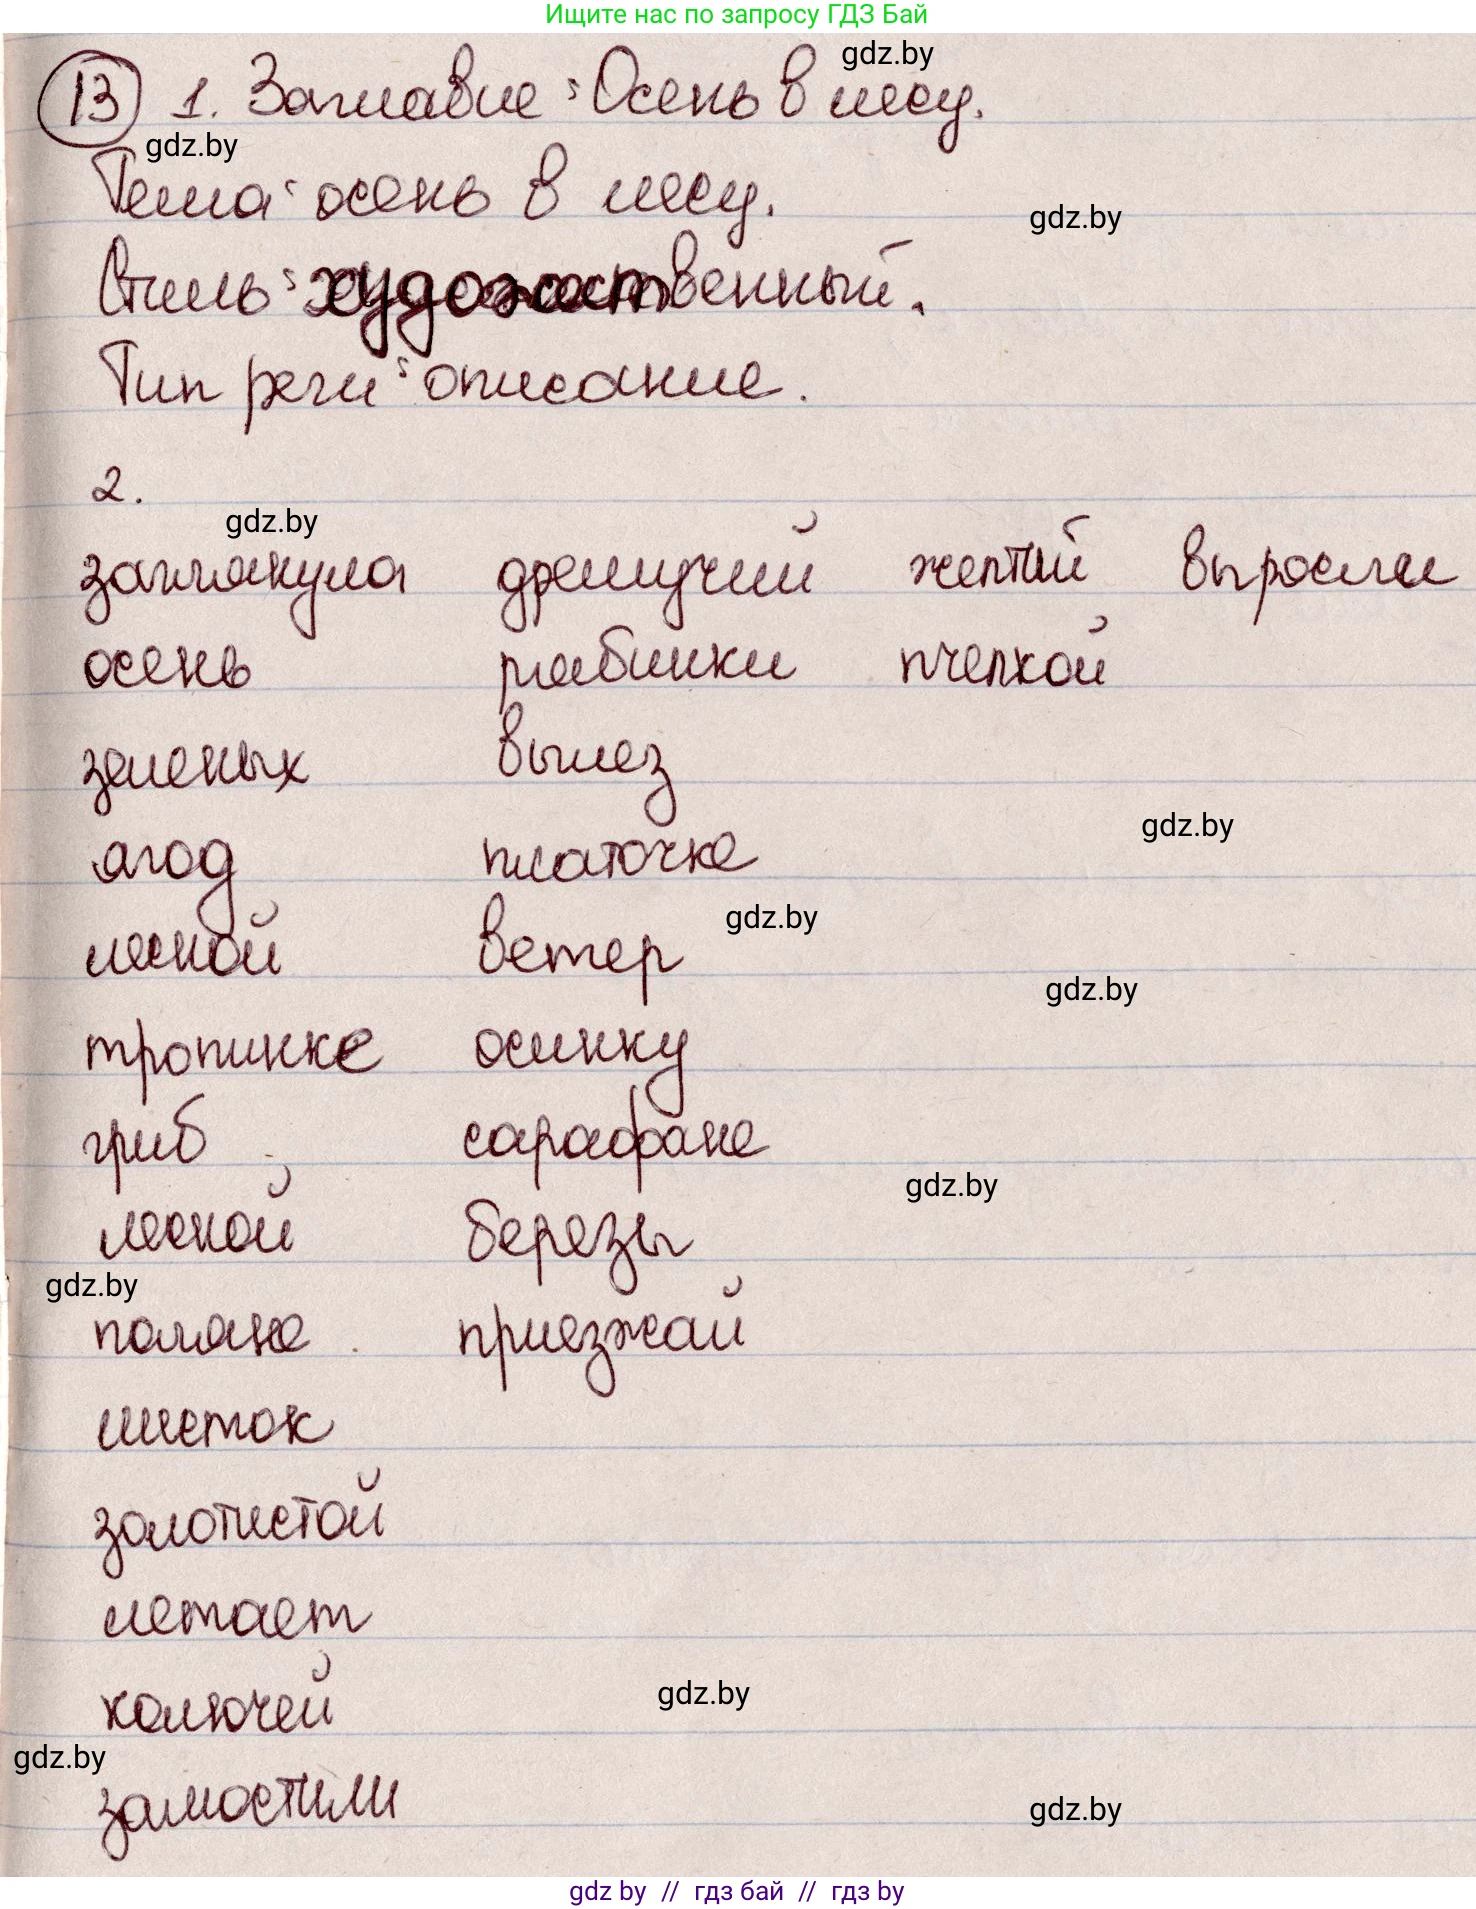 Ищите нас по запросу ГДЗ Бай
gdz.by
13 1. Заглавие: Осень в лесу.
gdz.by
Тема: осень в лесу.
gdz.by
Стиль: художественный.
Тип речи: описание.
2.
gdz.by
заглянула дремучий желтый выросли
осень рябинки пчелкой
зеленых вылез
gdz.by
ягод платочке
gdz.by
лесной ветер
gdz.by
тропинке осинку
гриб сарафане
gdz.by
лесной березы
gdz.by
поляне приезжай
листок
золотистой
летает
gdz.by
колючей
gdz.by
замостили
gdz.by
gdz by // гдз бай // гдз by